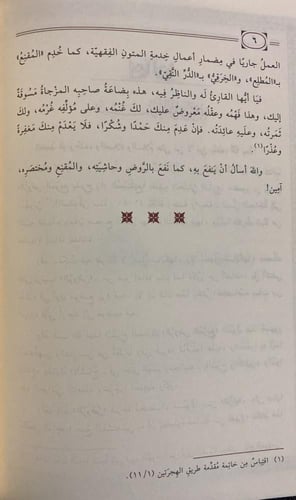 ٦
العملُ جاريًا في مِضمارِ أعمالِ خِدمةِ المتونِ الفِقهيَّة، كما خُدِم «المُقنِعُ»
بـ«المُطلِع»، و«الخِرَقيُّ» بـ«الدُّرِّ النَّقيّ».
فيَا أيُّها القارئُ له والناظِرُ فيه، هذه بضاعةُ صاحبِه المزجاةُ مَسُوقةٌ
إليك، وهذا فَهْمُه وعقلُه مَعْروضٌ عليك، لكَ غُنْمُه، وعلى مُؤلِّفِه غُرْمُه، ولكَ
ثمرتُه، وعليهِ عائدتُه. فإنْ عَدِمَ مِنكَ حَمْدًا وشُكْرًا، فلا يَعْدَمْ مِنكَ مَغفِرةً
وعُذْرًا(١).
واللهَ أسألُ أنْ يَنفَعَ بِه، كما نَفَعَ بالرَّوضِ وحاشيَتِه، والمُقنِعِ ومُختصَرِه،
آمِين!
(١) اقتِباسٌ مِن خاتِمة مُقدِّمة طَريقِ الهِجرَتَين (١١/١).